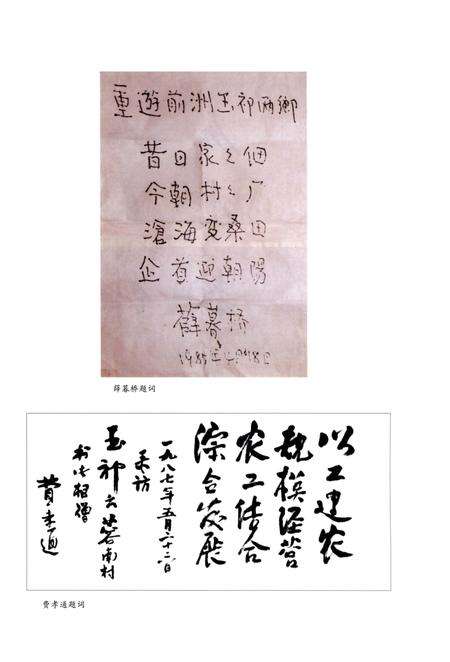 重遊前洲玉祁兩鄉
昔日家々佃
今朝村々厂
滄海变桑田
企首迎朝陽
薛暮桥
薛暮桥题词
以工建农
规模经营
农工结合
综合发展
一九八七年五月二十二日
来访
玉祁之蓉南村
书此相赠
费孝通
费孝通题词